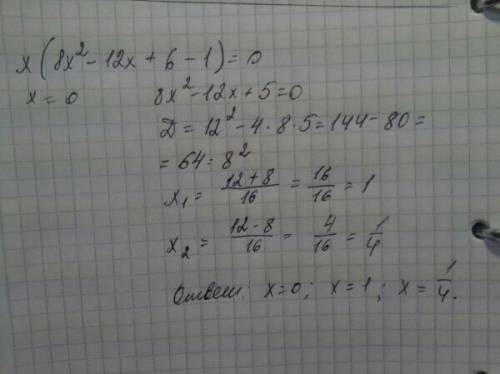 x(8x² - 12x + 6 - 1) = 0
x = 0 8x² - 12x + 5 = 0
D = 12² - 4 · 8 · 5 = 144 - 80 =
= 64 = 8²
x₁ = (12 + 8)/16 = 16/16 = 1
x₂ = (12 - 8)/16 = 4/16 = 1/4
Ответ: x = 0; x = 1; x = 1/4.